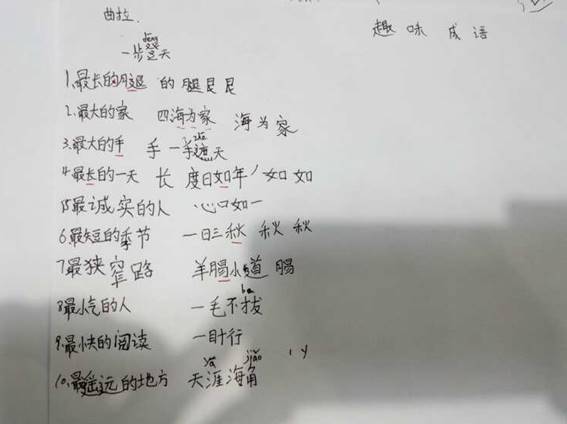 曲拉
趣味成语
dēng
一步登天
1.最长的腿 的腿昆昆
2.最大的家 四海为家 海为家
3.最大的手 手 一手遮天
4.最长的一天 长 度日如年 如如
5.最诚实的人 心口如一
6.最短的季节 一日三秋 秋 秋
7.最狭窄路 羊肠小道 肠
8.最小气的人 一毛不拔
9.最快的阅读 一目十行
10.最遥远的地方 天涯海角